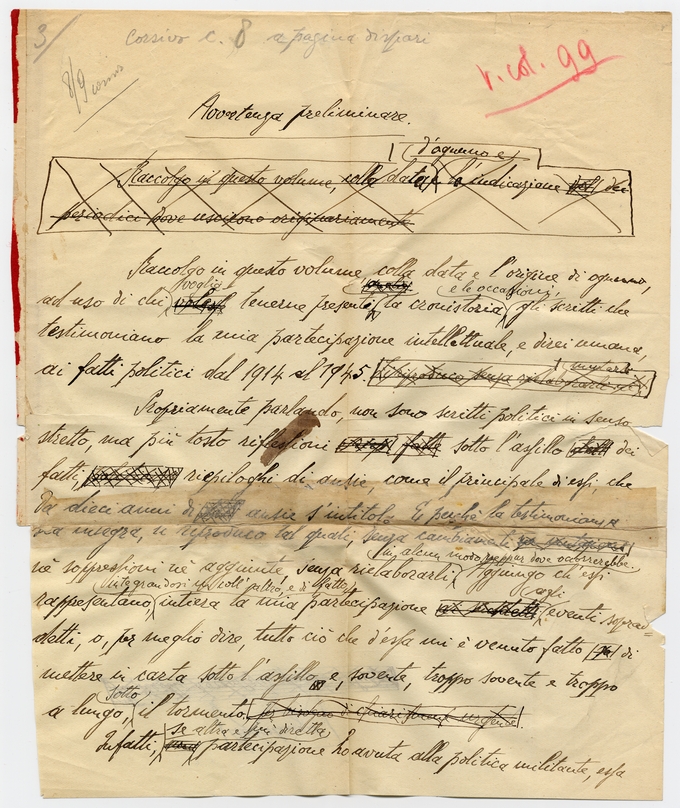 3/
Corsivo c. 8 a pagina dispari
8/9 corsivo
v. col. 99
Avvertenza preliminare.
d'ognuno e
Raccolgo in questo volume, colla data, e la indicazione dei
periodici dove uscirono originariamente
Raccolgo in questo volume, colla data e l'origine di ognuno,
voglia e le occasioni,
ad uso di chi tenerne presenti la cronistoria, gli scritti che
testimoniano la mia partecipazione intellettuale, e direi umana,
ai fatti politici dal 1914 al 1945. Li riproduco senza rielaborarli
Propriamente parlando, non sono scritti politici in senso
stretto, ma più tosto riflessioni sotto l'assillo dei
fatti, riepiloghi di ansie, come il principale di essi, che
Da dieci anni di ansie s'intitola. E perchè la testimonianza
sia integra, si riproduco tal quali, senza cambiamenti
in alcun modo neppur dove occorrerebbe.
nè soppressioni nè aggiunte, senza rielaborarli. Aggiungo ch'essi
Integrandosi coll'altro, e di fatto, agli
rappresentano, intiera la mia partecipazione eventi soprad-
detti, o, per meglio dire, tutto ciò che d'essa mi è venuto fatto di
mettere in carta sotto l'assillo e, sovente, troppo sovente e troppo
sotto
a lungo, il tormento
se altra e più diretta
Infatti, partecipazione ho avuta alla politica militante, essa